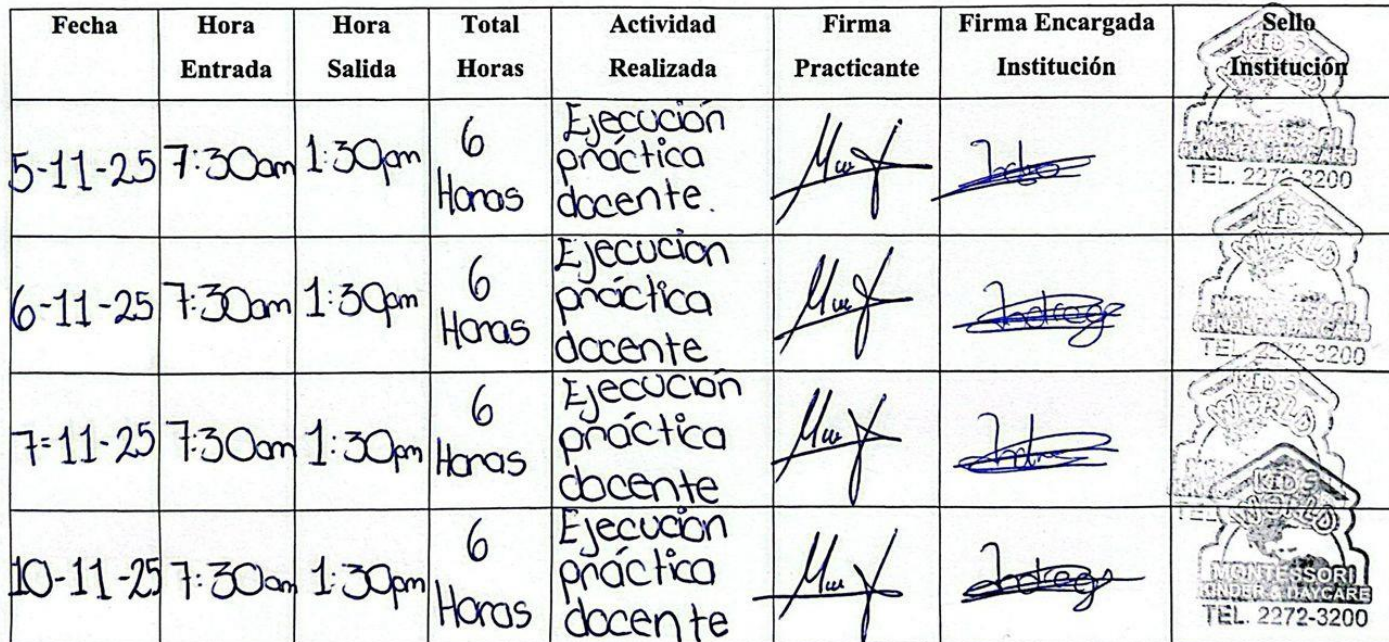 Fecha Hora Entrada Hora Salida Total Horas Actividad Realizada Firma Practicante Firma Encargada Institución Sello Institución
5-11-25 7:30am 1:30pm 6 Horas Ejecución práctica docente.
KID'S
MONTESSORI
KINDER & DAYCARE
TEL. 2272-3200
6-11-25 7:30am 1:30pm 6 Horas Ejecución práctica docente
KID'S
WORLD
MONTESSORI
KINDER & DAYCARE
TEL. 2272-3200
7-11-25 7:30am 1:30pm 6 Horas Ejecución práctica docente
KID'S
WORLD
10-11-25 7:30am 1:30pm 6 Horas Ejecución práctica docente
KID'S
WORLD
MONTESSORI
KINDER & DAYCARE
TEL. 2272-3200